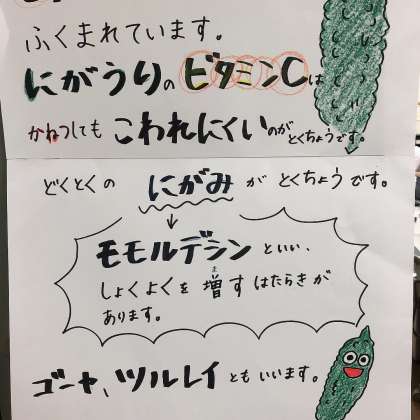 ふくまれています。
にがうりのビタミンCは
かねつしてもこわれにくいのがとくちょうです。
どくとくの にがみ が とくちょうです。
↓
モモルデシンといい、
しょくよくを増すはたらきが
ま
あります。
ゴーヤ、ツルレイともいいます。